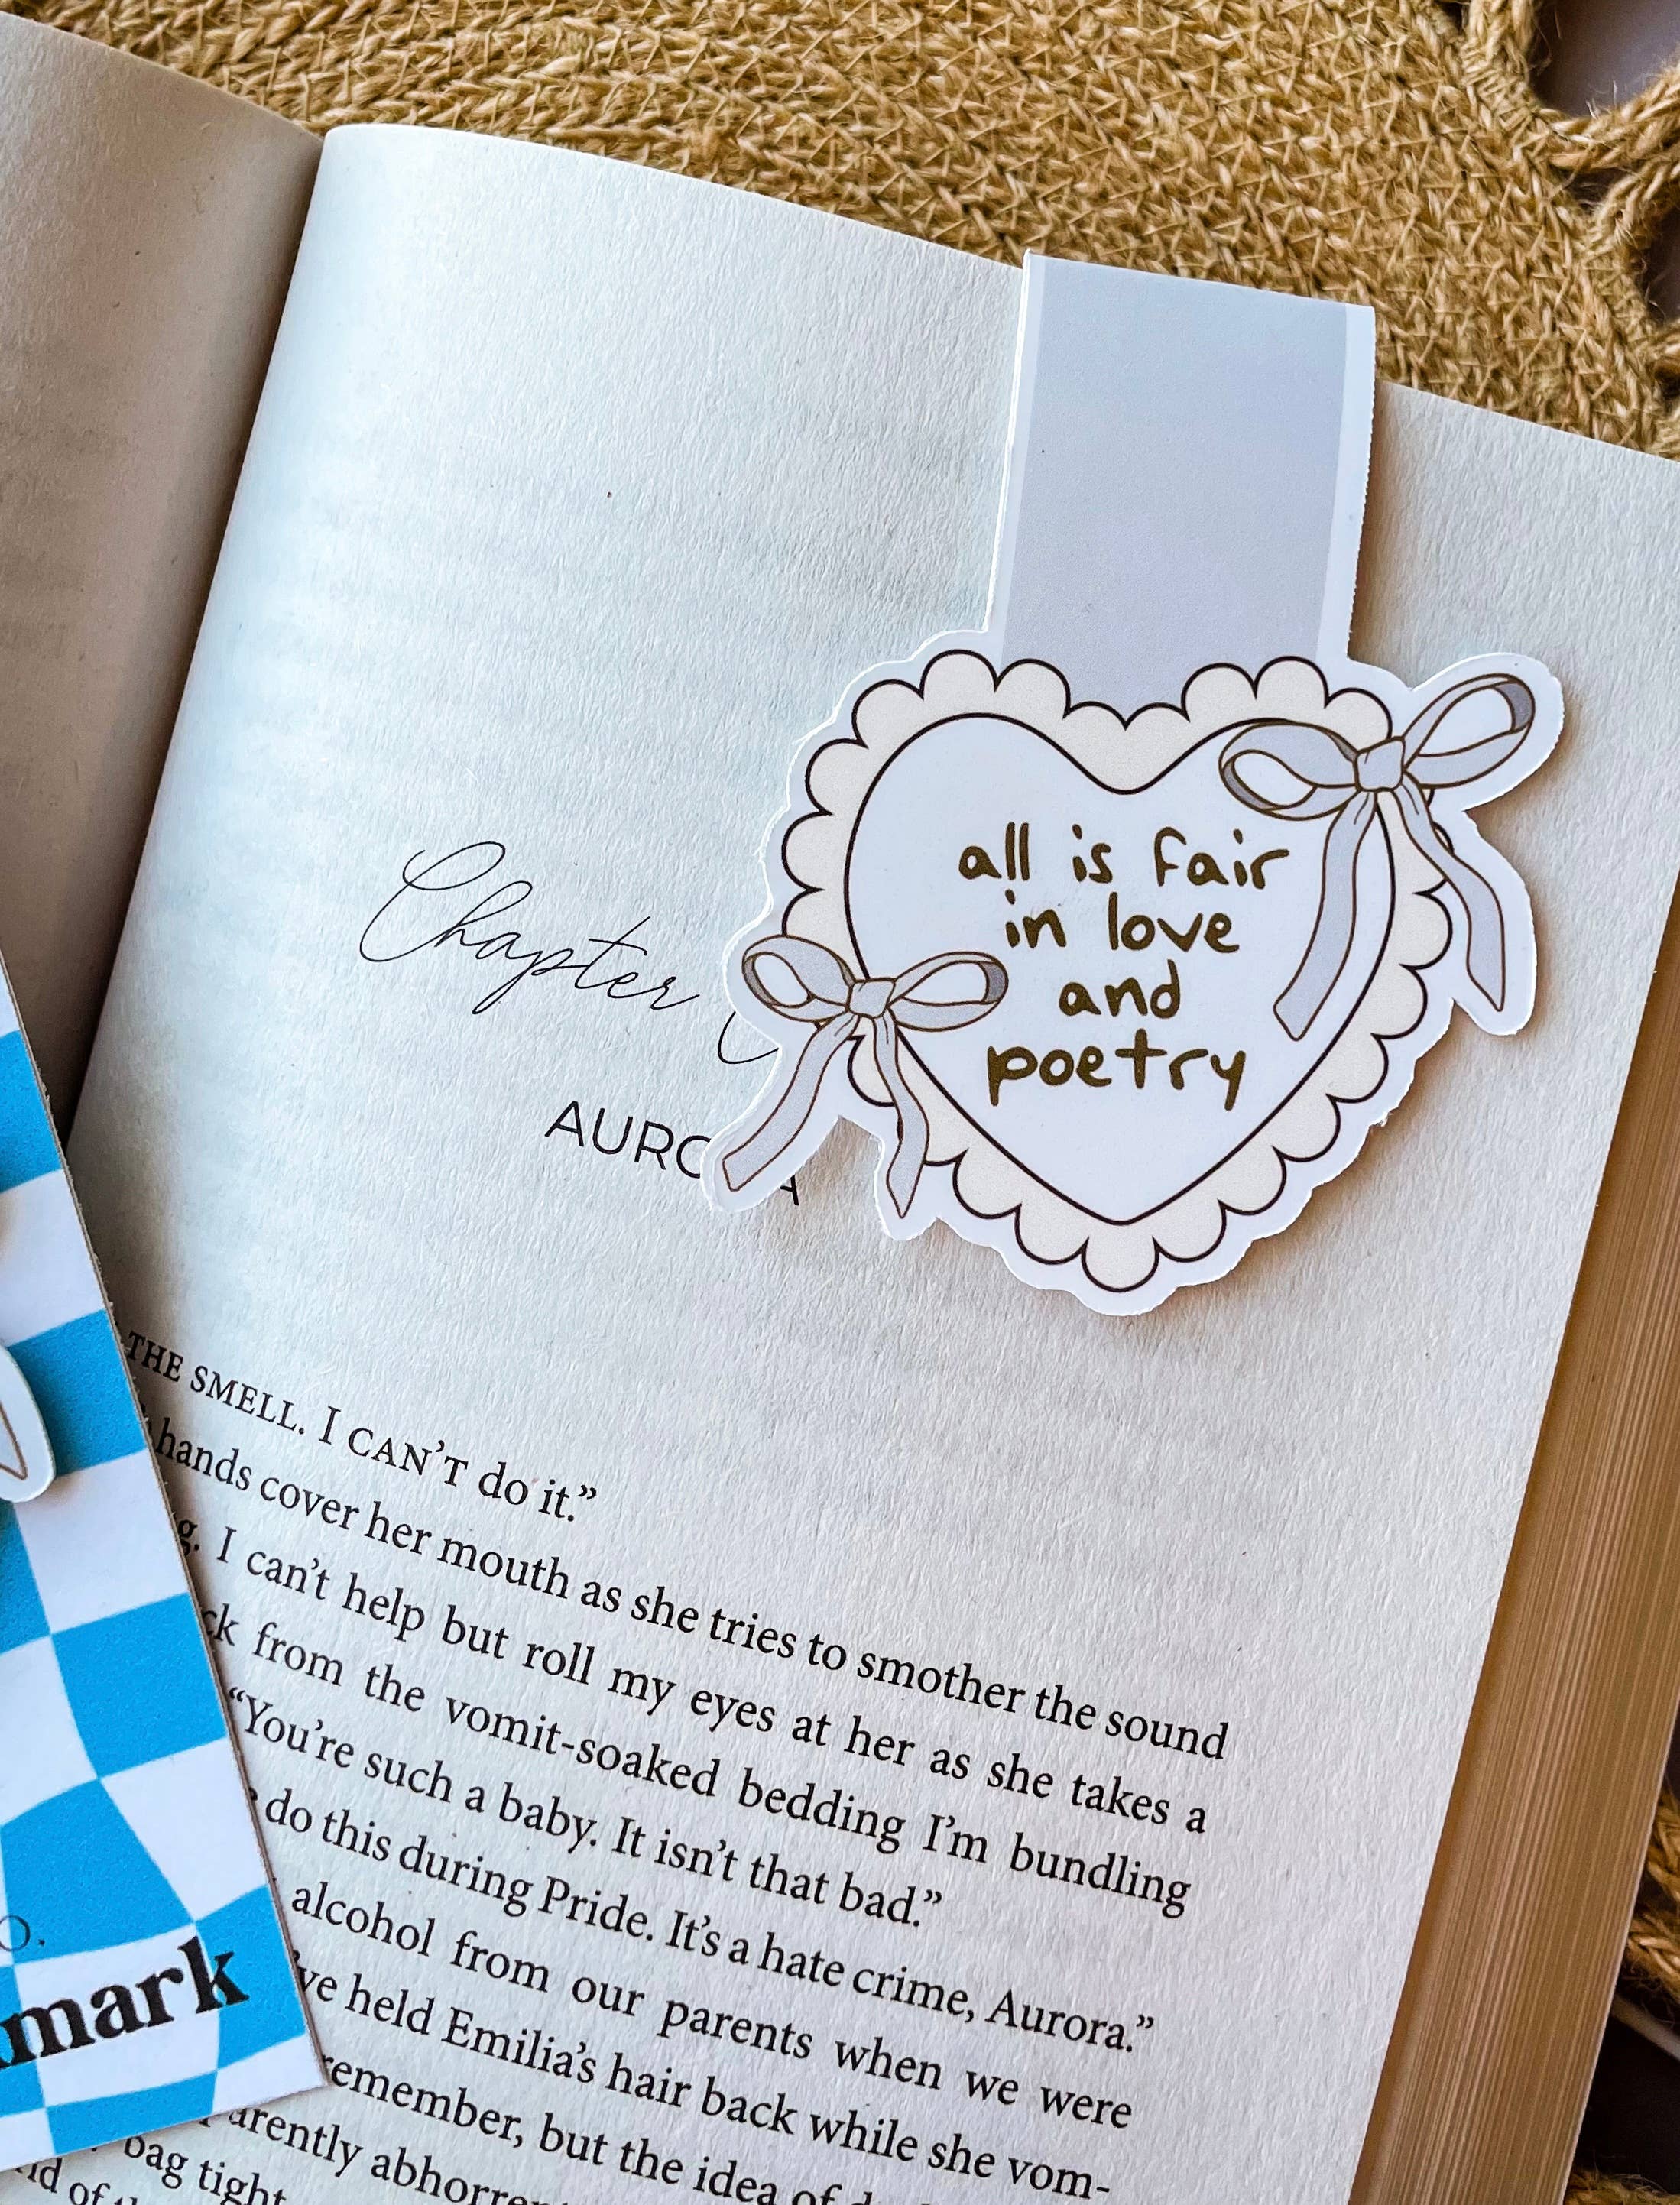 all is fair
in love
and
poetry
Chapter
THE SMELL. I CAN'T do it.”
hands cover her mouth as she tries to smother the sound
I can't help but roll my eyes at her as she takes a
from the vomit-soaked bedding I'm bundling
“You're such a baby. It isn't that bad.”
do this during Pride. It's a hate crime, Aurora.”
alcohol from our parents when we were
held Emilia's hair back while she vom-
remember, but the idea of
bag tight
of
mark